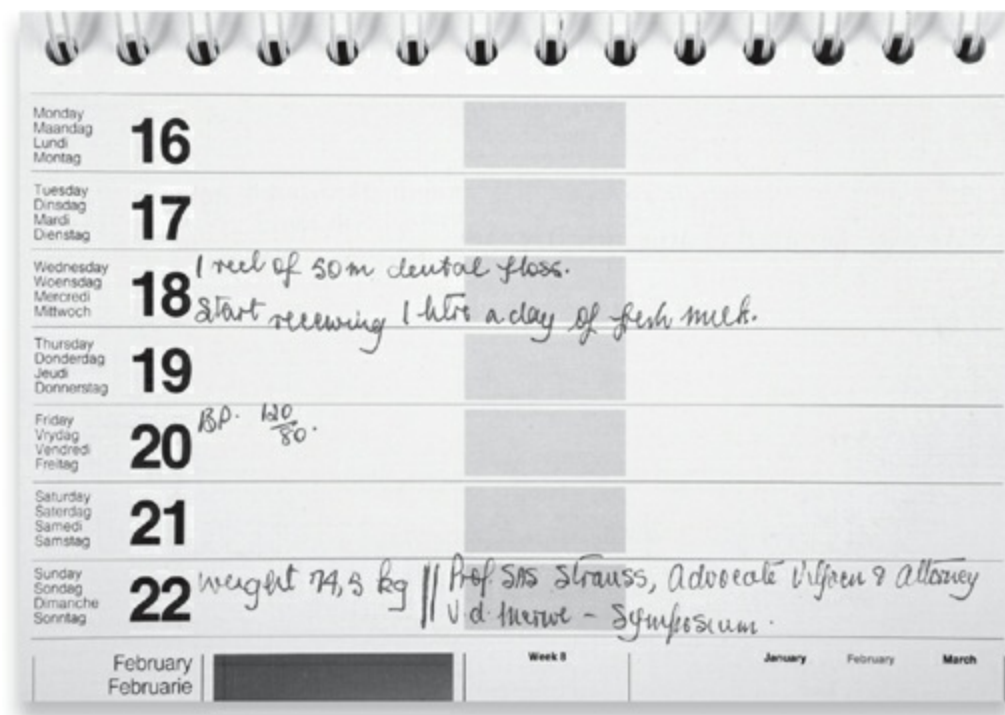 Monday
Maandag
Lundi
Montag
16
Tuesday
Dinsdag
Mardi
Dienstag
17
Wednesday
Woensdag
Mercredi
Mittwoch
18
1 reel of 50m dental floss.
Start receiving 1 litre a day of fresh milk.
Thursday
Donderdag
Jeudi
Donnerstag
19
Friday
Vrydag
Vendredi
Freitag
20
BP. 120
80.
Saturday
Saterdag
Samedi
Samstag
21
Sunday
Sondag
Dimanche
Sonntag
22
weight 74,5 kg || Prof. SAS Strauss, Advocate Viljoen & Attorney
V.d. Merwe – Symposium.
February
Februarie
Week 8
January February March